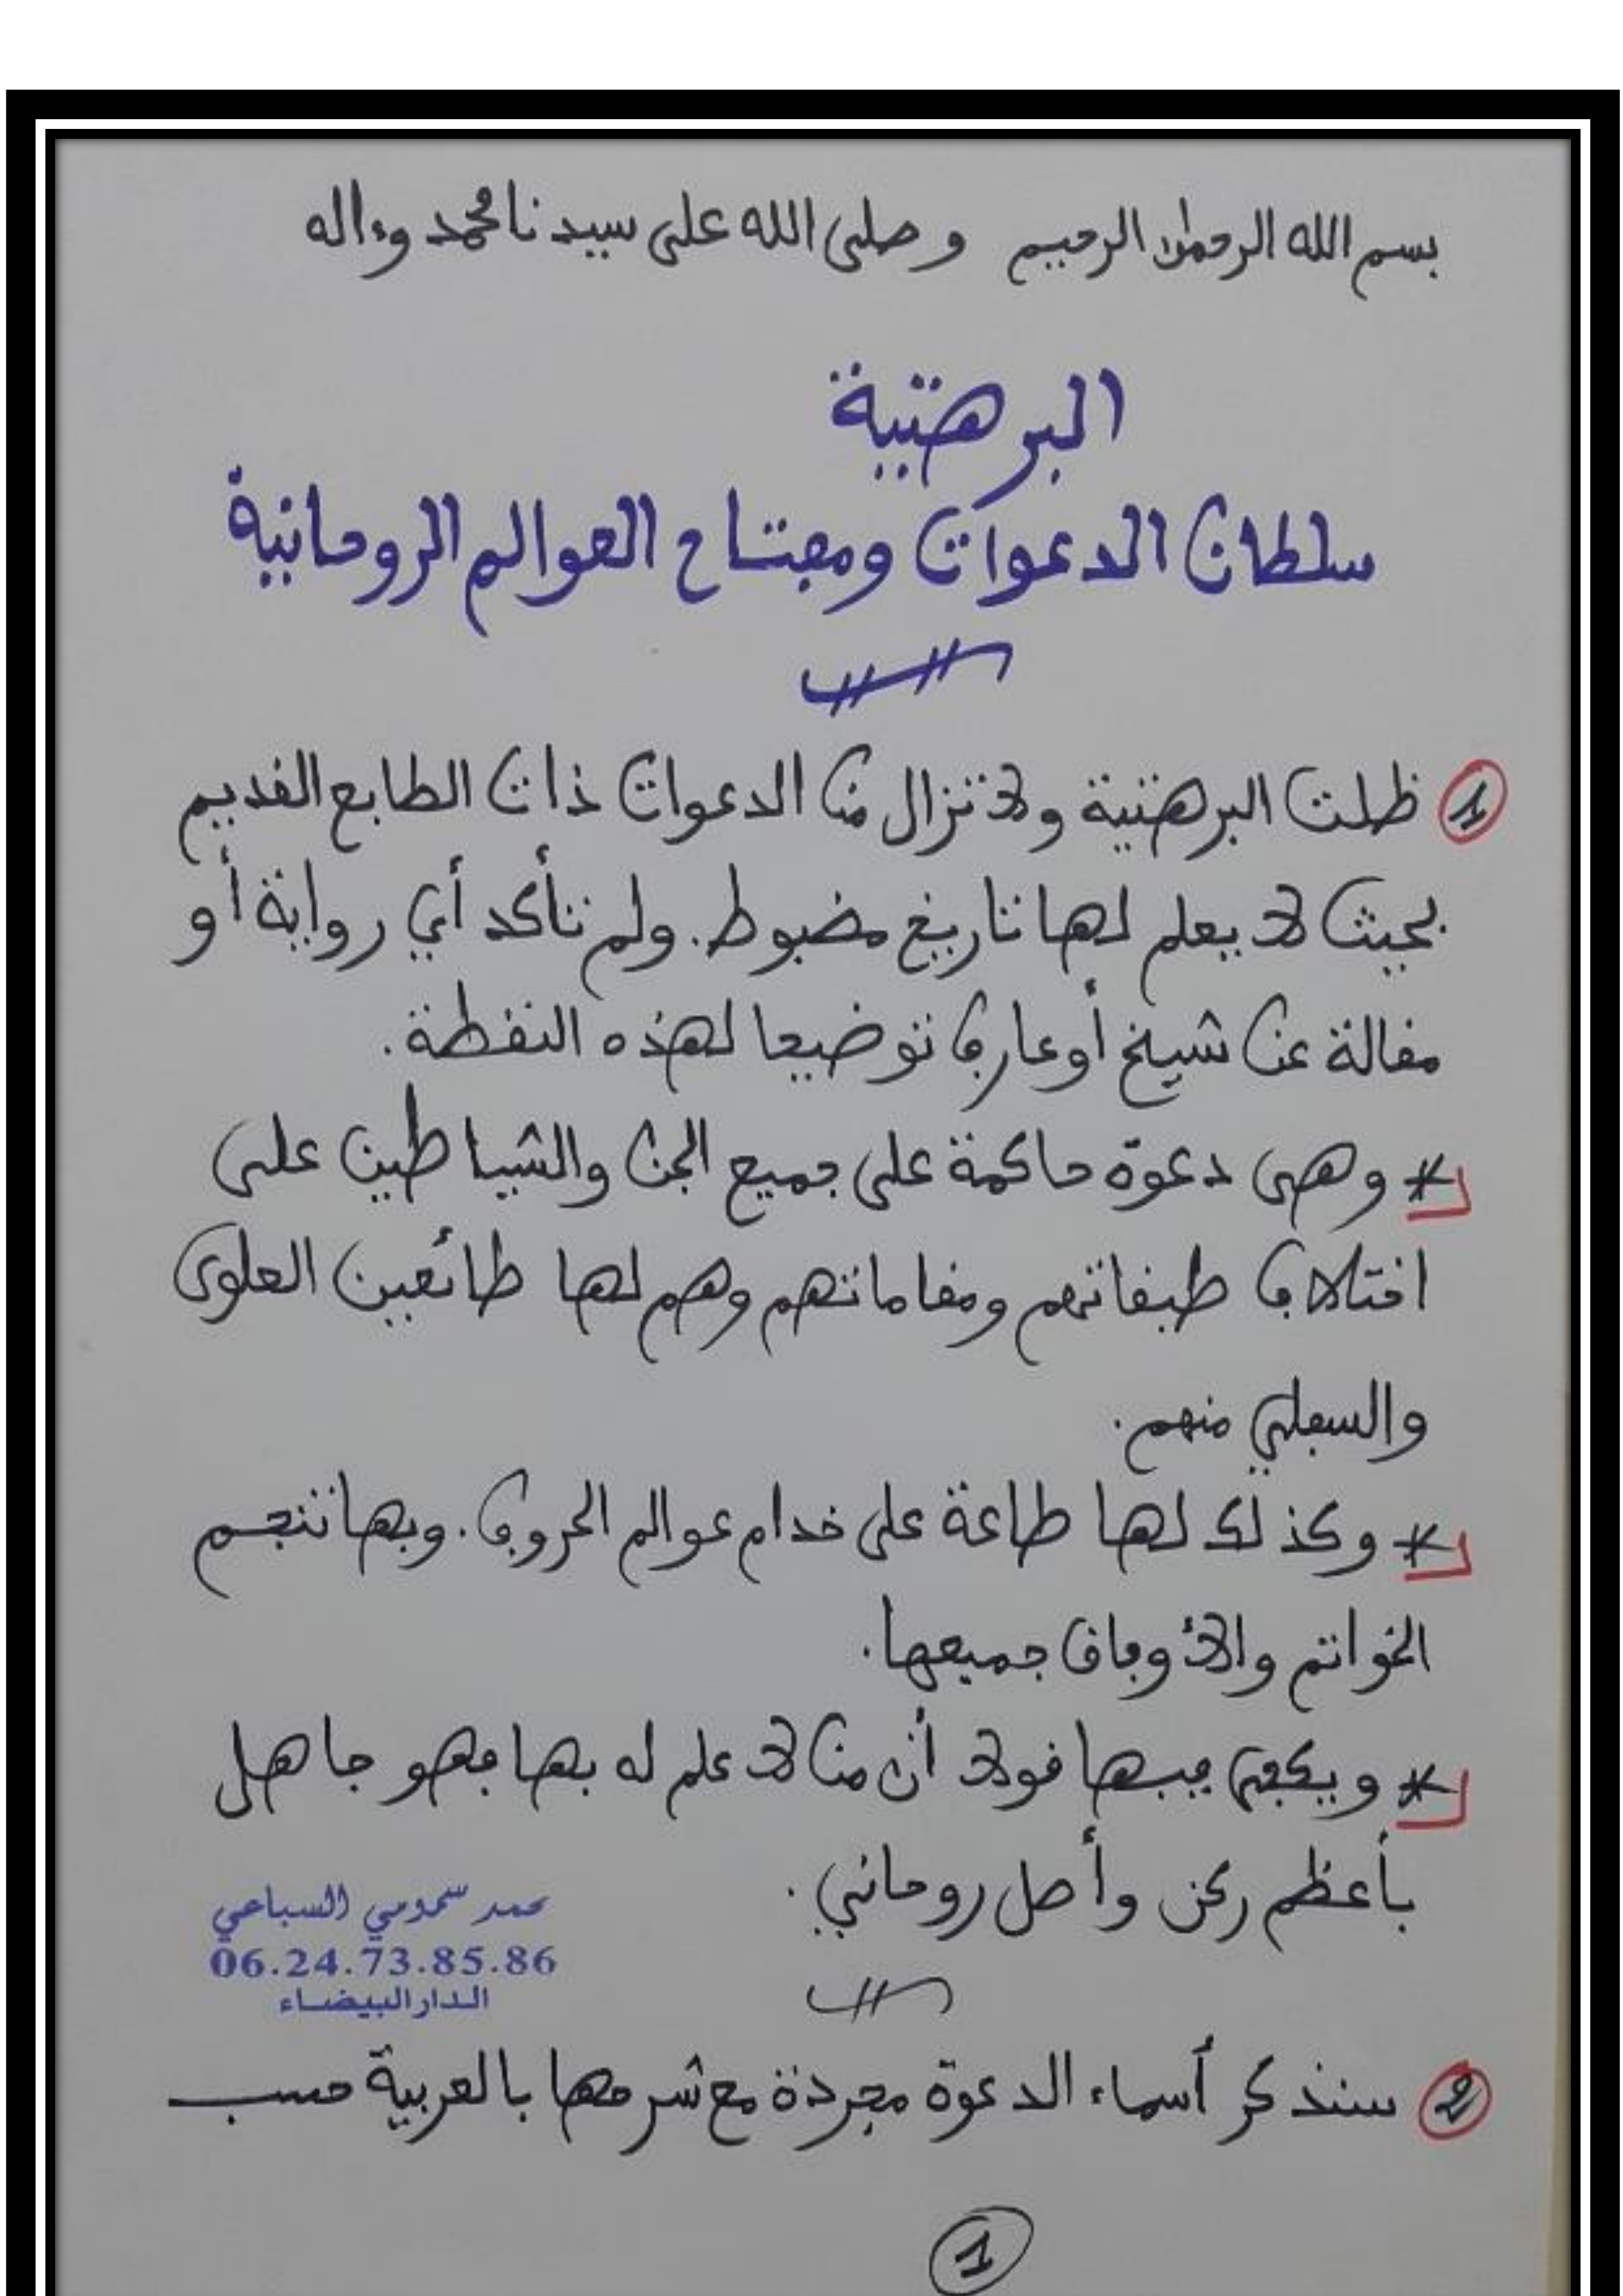 بسم الله الرحمن الرحيم وصلى الله على سيدنا محمد وءاله
البرهتية
سلطان الدعوات ومفتاح العوالم الروحانية
1 ظلت البرهتية ولا تزال من الدعوات ذات الطابع القديم
بحيث لا يعلم لها تاريخ مضبوط. ولم تتأكد أي رواية أو
مقالة عن شيخ أو عارف توضيحا لهذه النقطة.
* وهي دعوة حاكمة على جميع الجن والشياطين على
اختلاف طبقاتهم ومقاماتهم وهم لها طائعين العلوي
والسفلي منهم.
* وكذلك لها طاعة على خدام عوالم الحروف. وبها تنجم
الخواتم والأوفاق جميعها.
* ويكفي فيها قولا أن من لا علم له بها فهو جاهل
بأعظم ركن وأصل روحاني.
محمد سمومي السباعي
06.24.73.85.86
الدار البيضاء
2 سنذكر أسماء الدعوة مجردة مع شرحها بالعربية حسب
1